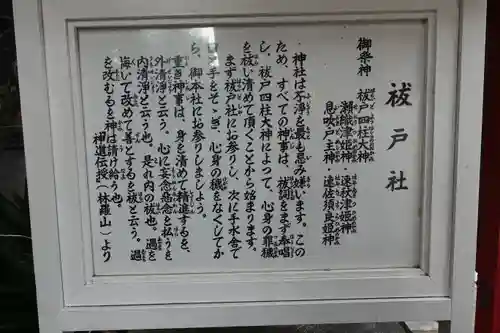 祓戸社
御祭神 祓戸四柱大神
瀬織津姫神・速秋津姫神
息吹戸主神・速佐須良姫神
神社は不浄を最も忌み嫌います。この
ため、すべての神事は、祓詞をまず奉唱
し、祓戸四柱大神によって、心身の罪穢
を祓い清めて頂くことから始まります。
まず祓戸社にお参りし、次に手水舎で
口と手をそゝぎ、心身の穢をなくしてか
ら、御本社にお参りしましょう。
重き神事は、身を清めて精進するを、
外清浄と云う。心に妄念悪念を払うを
内清浄と云う也。是れ内の祓也。過を
悔いて改めて善とするを祓と云う。過
を改むるを神は請け給う也。
神道伝授（林羅山）より